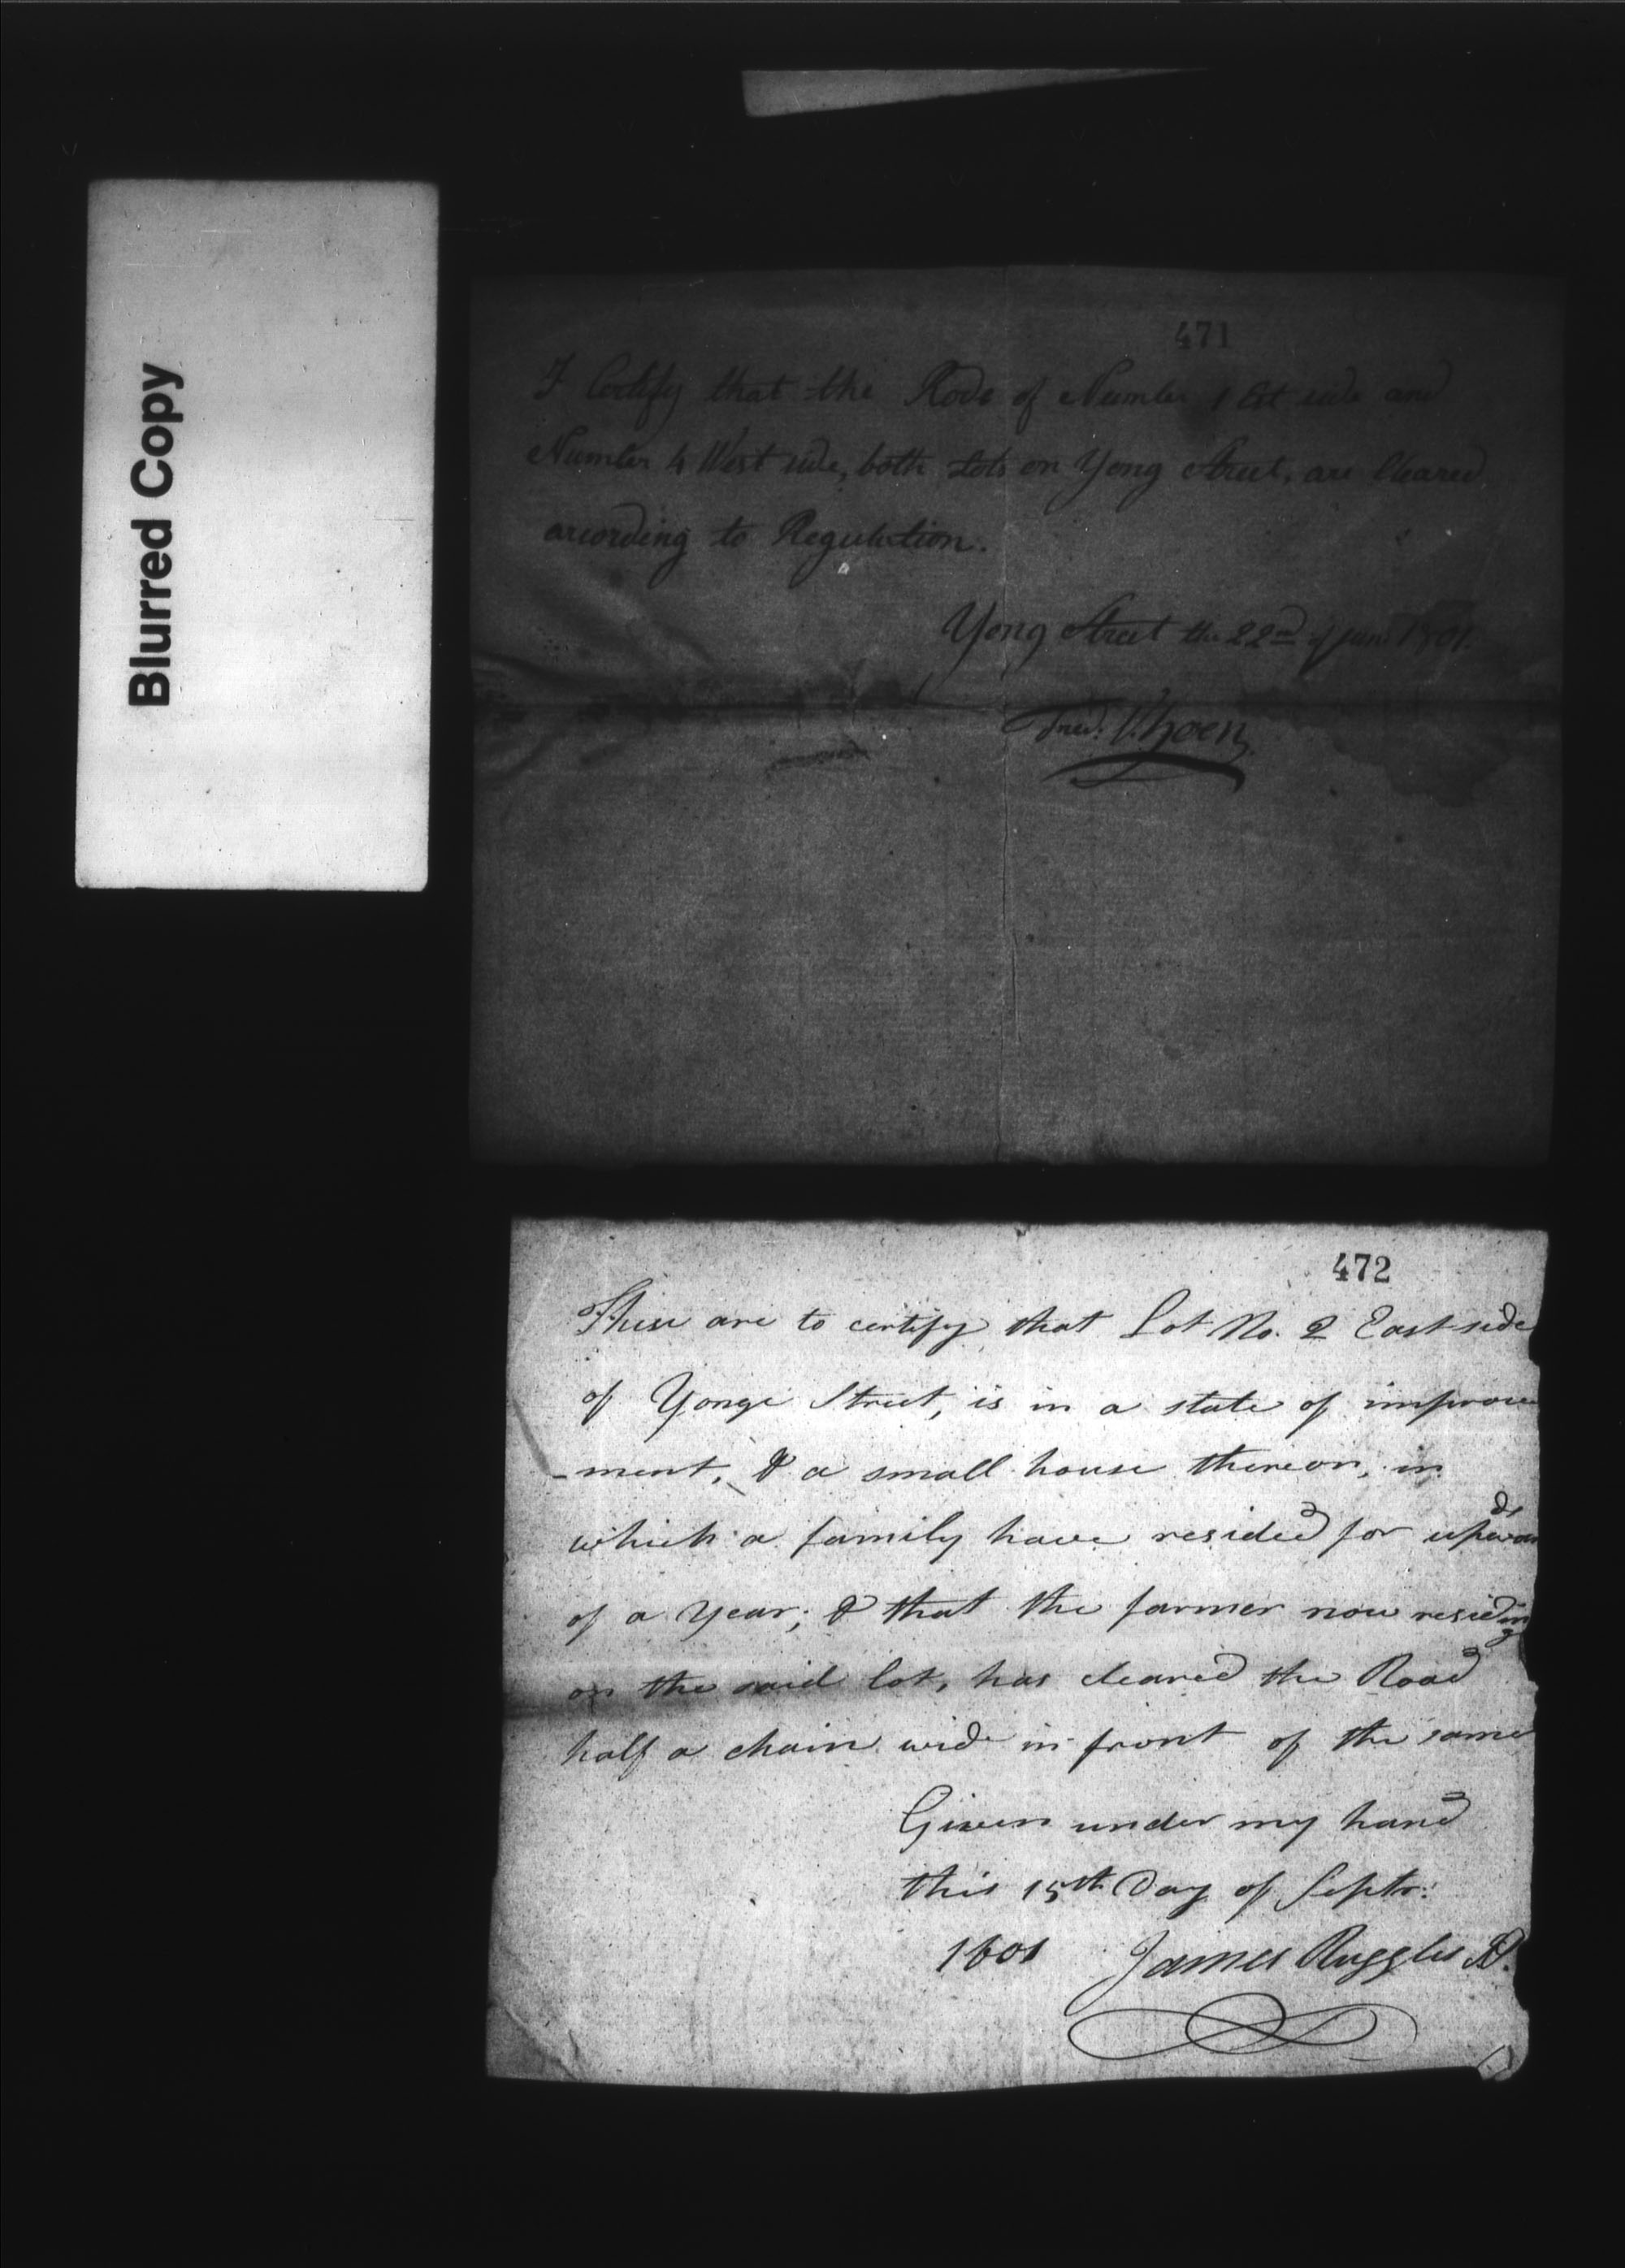 Blurred Copy
471
I Certify that the Rode of Number 1 Est side and
Number 4 West side, both Lots on Yong Street, are Cleared
according to Regulation.
Yong Street the 22nd of June 1801.
Fred: V. hoen
472
These are to certify, that Lot No. 2 East side
of Yonge Street, is in a state of improve
-ment, & a small house thereon, in
which a family have resided for upwards
of a Year; & that the farmer now residing
on the said lot, has cleared the Road
half a chain wide in front of the same
Given under my hand
this 15th Day of Septr:
1801 James Ruggles